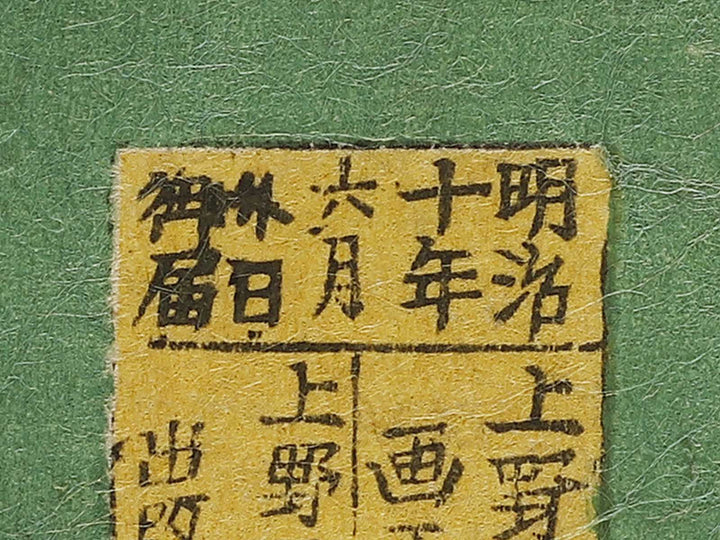 明治
十年
六月
日
御届
上
画
上野
出